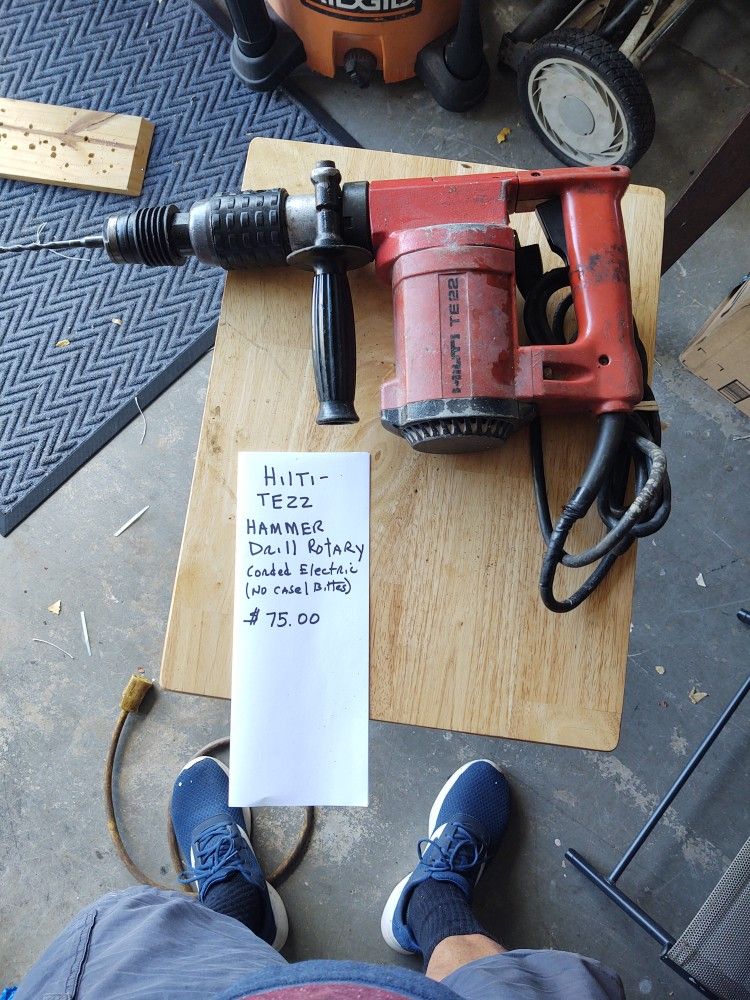 RIDGID
HILTI TE22
HIlTI-
TE22
HAMMER
Drill RotARY
Corded Electric
(NO CASE/Bittes)
$75.00